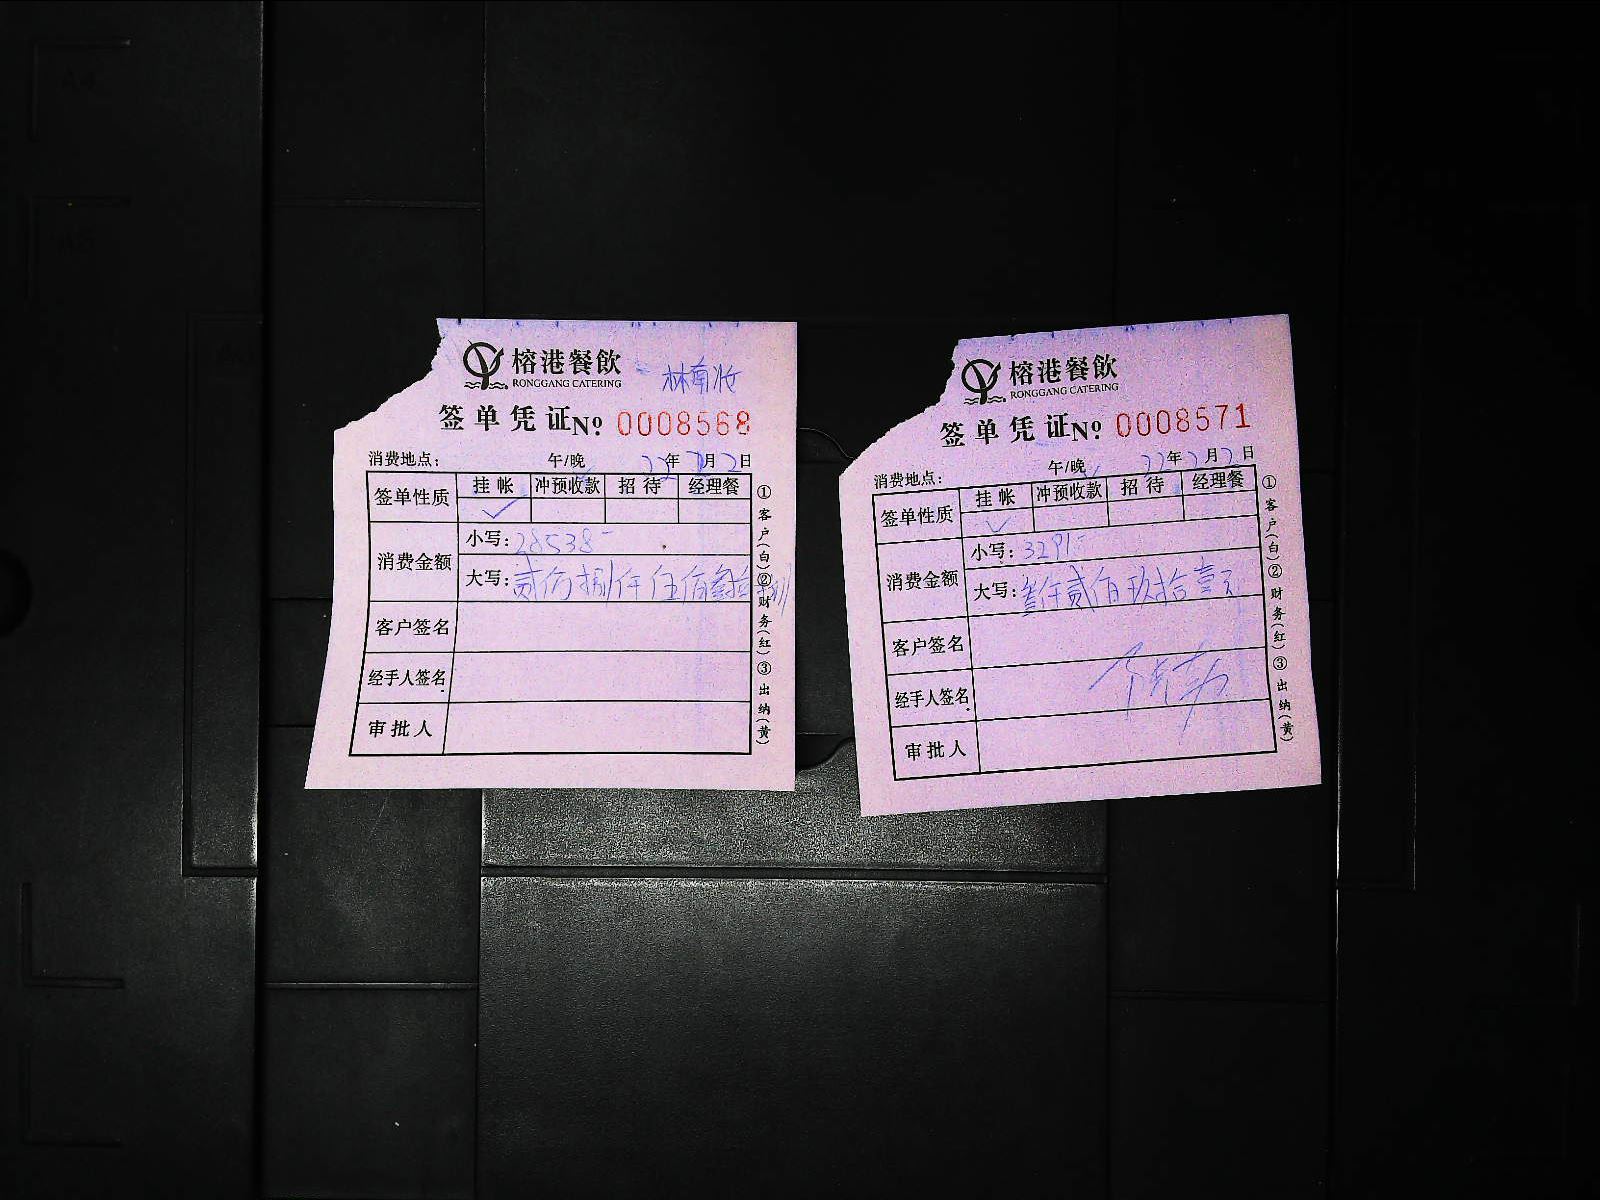 榕港餐飲
RONGGANG CATERING
签单凭证No. 0008568
消费地点： 午/晚 22年 月2日
签单性质 挂帐 冲预收款 招待 经理餐
✓
消费金额
小写：28538-
大写：贰万捌仟伍佰叁拾捌
客户签名
经手人签名
审批人
①客户(白)②财务(红)③出纳(黄)
榕港餐飲
RONGGANG CATERING
签单凭证No. 0008571
消费地点： 午/晚 22年2月2日
签单性质 挂帐 冲预收款 招待 经理餐
✓
消费金额
小写：3291-
大写：叁仟贰佰玖拾壹元
客户签名
经手人签名
审批人
①客户(白)②财务(红)③出纳(黄)